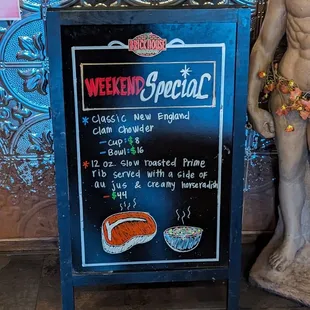 BRICKHOUSE
WEEKEND Special
* Classic New England
Clam Chowder
- Cup: $8
- Bowl: $16
* 12 oz. slow roasted Prime
rib served with a side of
au jus & creamy horseradish
- $44